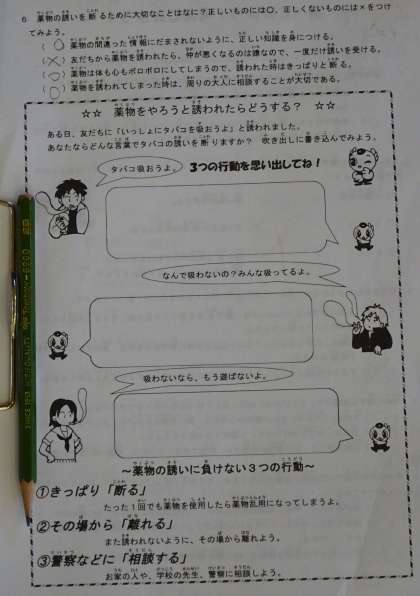 6 薬物の誘いを断るために大切なことはなに？正しいものには○、正しくないものには×をつけ
てみよう。
(○) 薬物の間違った情報にだまされないように、正しい知識を身につける。
(×) 友だちから薬物を誘われたら、仲が悪くなるのは嫌なので、一度だけ誘いを受ける。
(○) 薬物は体も心もボロボロにしてしまうので、誘われた時はきっぱりと断る。
(○) 薬物を誘われてしまった時は、周りの大人に相談することが大切である。
☆☆ 薬物をやろうと誘われたらどうする？ ☆☆
ある日、友だちに「いっしょにタバコを吸おうよ」と誘われました。
あなたならどんな言葉でタバコの誘いを断りますか？ 吹き出しに書き込んでみよう。
タバコ吸おうよ。 3つの行動を思い出してね！
なんで吸わないの？みんな吸ってるよ。
吸わないなら、もう遊ばないよ。
～薬物の誘いに負けない３つの行動～
①きっぱり「断る」
たった１回でも薬物を使用したら薬物乱用になってしまうよ。
②その場から「離れる」
また誘われないように、その場から離れよう。
③警察などに「相談する」
お家の人や、学校の先生、警察に相談しよう。